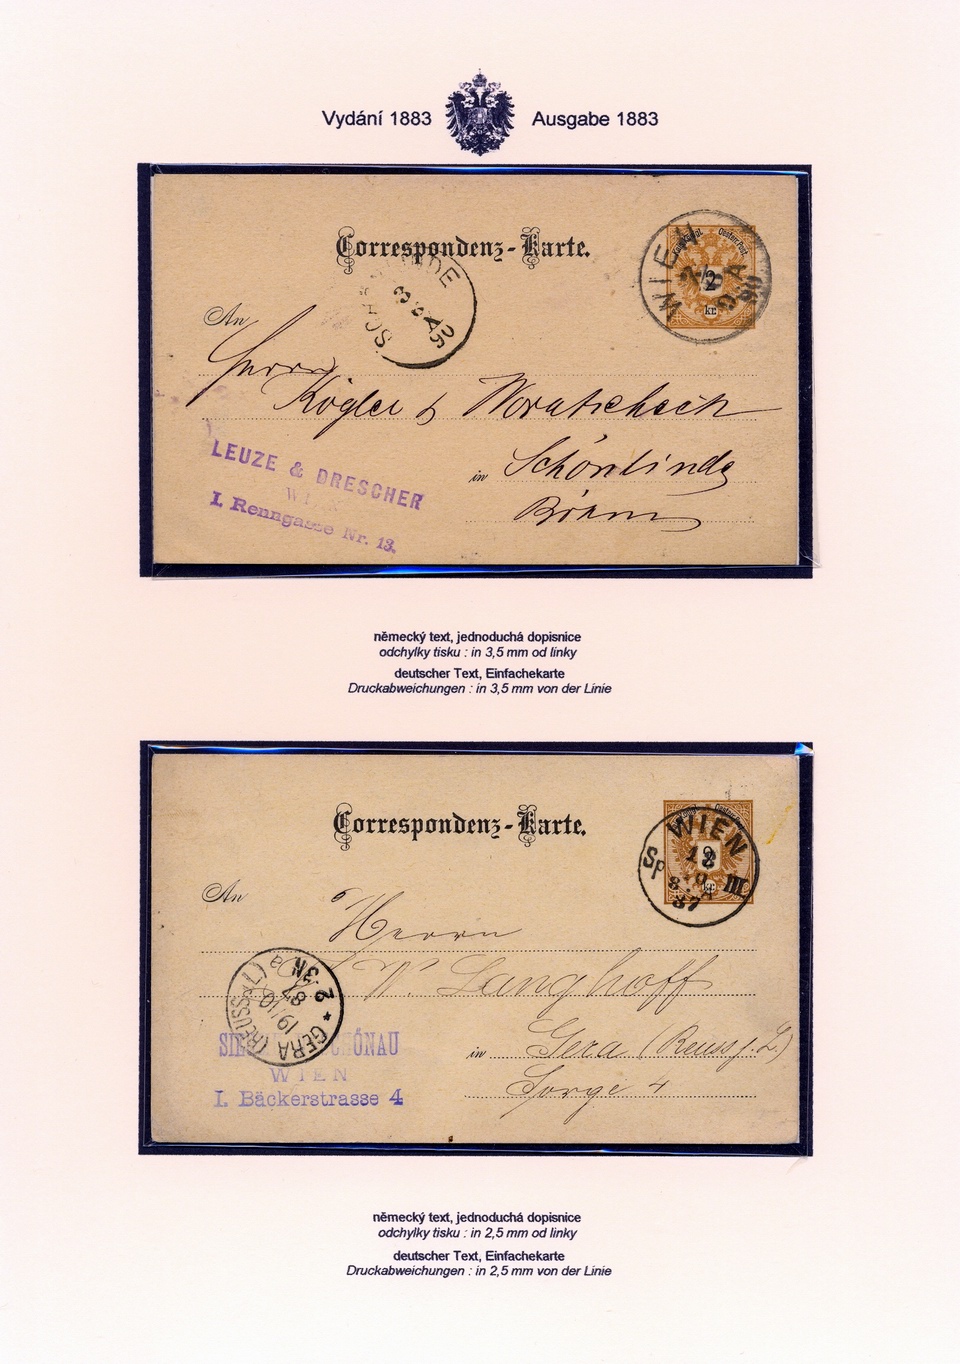 Vydání 1883
Ausgabe 1883
Correspondenz-Karte.
WIEN
2
kr.
90
3 9
90
An
Herrn
Kögler & Woratscheck
in Schönlinde
Böhmen
LEUZE & DRESCHER
WIEN
I. Renngasse Nr. 13.
německý text, jednoduchá dopisnice
odchylky tisku : in 3,5 mm od linky
deutscher Text, Einfachekarte
Druckabweichungen : in 3,5 mm von der Linie
Correspondenz-Karte.
WIEN
III
87
An
Herrn
W. Langhoff
in Gera (Reuss j. L.)
Sorge 4
GERA (REUSS j.L)
19/10
87
2-3N
WIEN
I. Bäckerstrasse 4
německý text, jednoduchá dopisnice
odchylky tisku : in 2,5 mm od linky
deutscher Text, Einfachekarte
Druckabweichungen : in 2,5 mm von der Linie